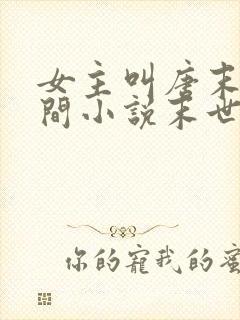 女主叫唐末
間小說末世
你的寵我的蜜